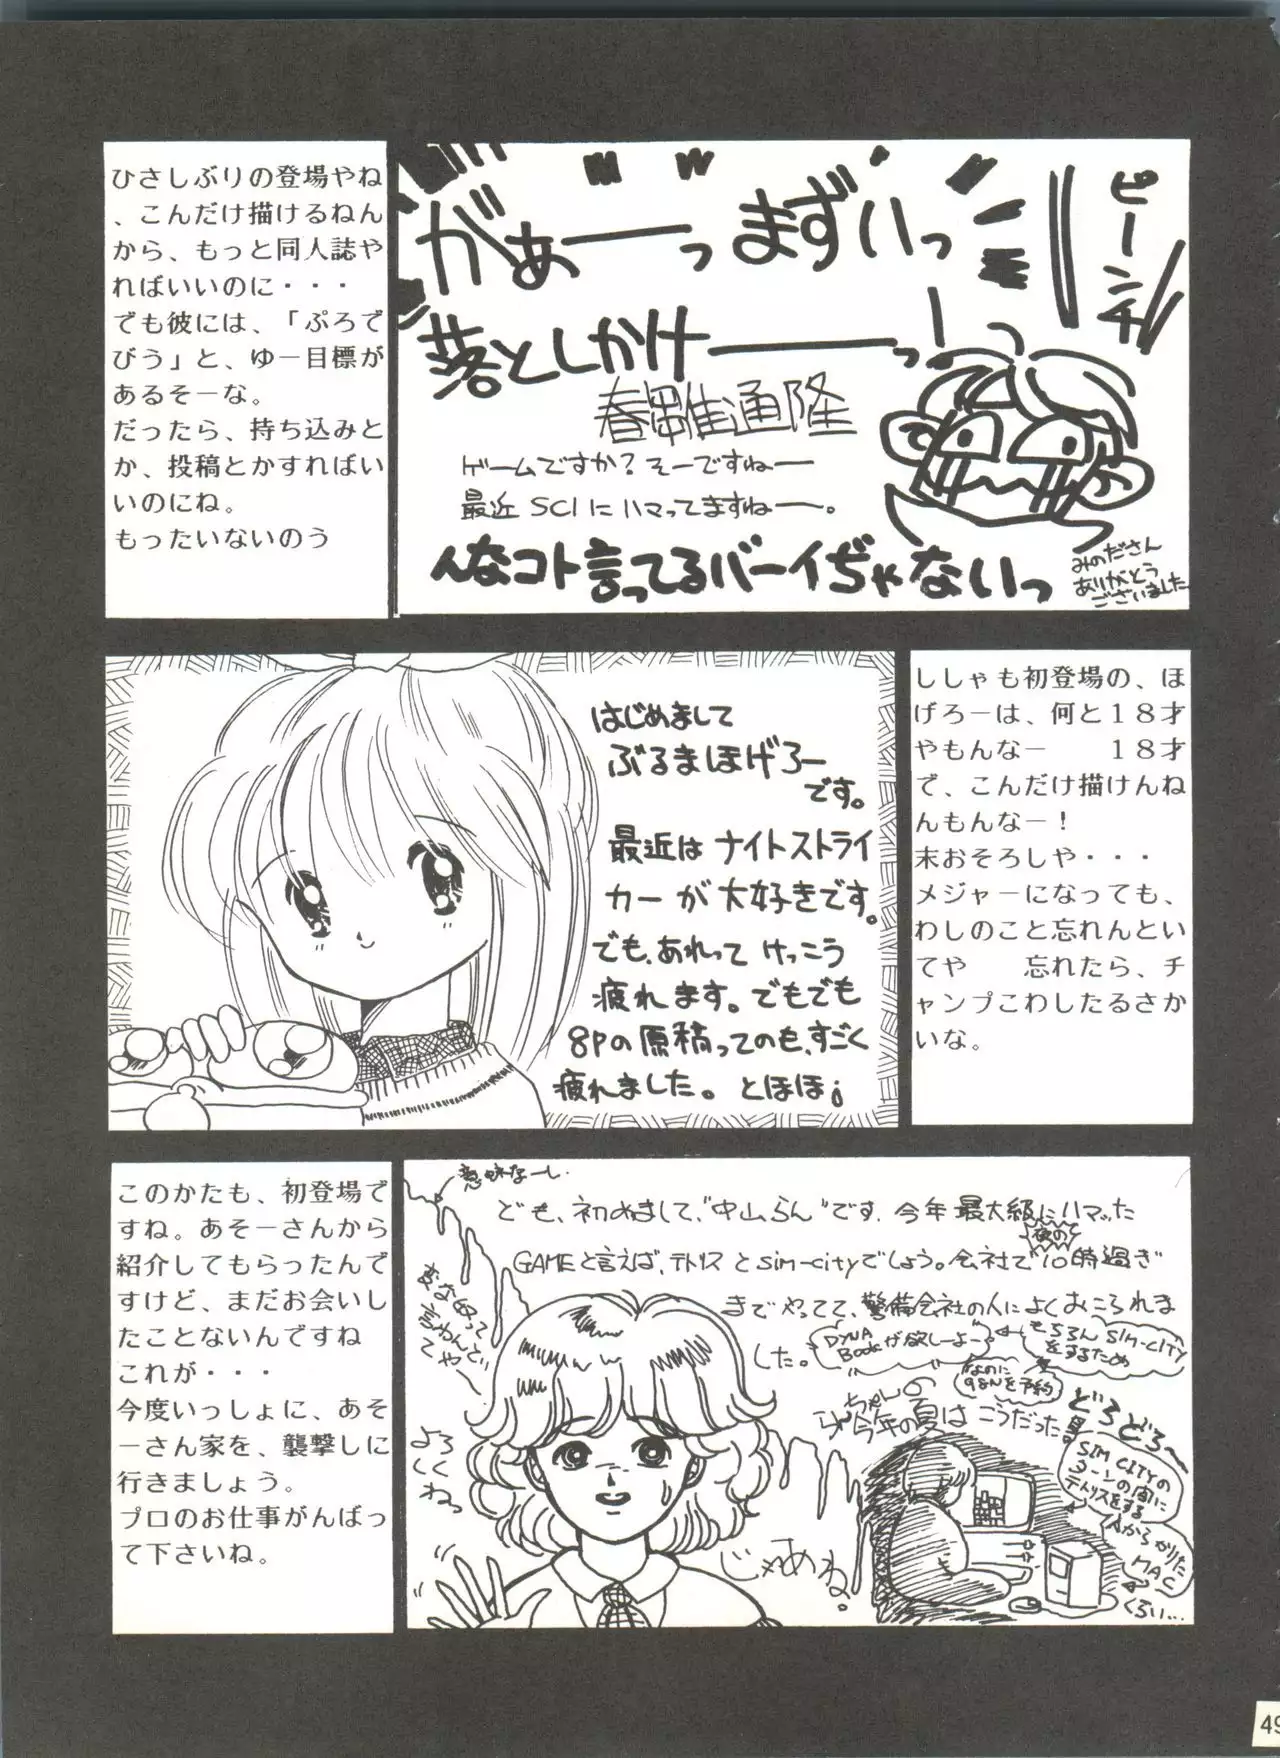 ひさしぶりの登場やね
、こんだけ描けるねん
から、もっと同人誌や
ればいいのに・・・
でも彼には、「ぷろで
びう」と、ゆー目標が
あるそーな。
だったら、持ち込みと
か、投稿とかすればい
いのにね。
もったいないのう
がぁーーっ まずいっ
ピーンチ
落としかけーーっ!
春雛通隆
ゲームですか?そーですねー
最近 SCI にハマってますねー。
んなコト言ってるバーイぢゃないっ
みのださん
ありがとう
ございました
はじめまして
ぶるまほげろー
です。
最近は ナイトストライ
カー が大好きです。
でも、あれって けっこう
疲れます。でもでも
8Pの原稿ってのも、すごく
疲れました。とほほ
ししゃも初登場の、ほ
げろーは、何と18才
やもんなー　18才
で、こんだけ描けんね
んもんなー!
末おそろしや・・・
メジャーになっても、
わしのこと忘れんとい
てや　忘れたら、チ
ャンプこわしたるさか
いな。
このかたも、初登場で
すね。あそーさんから
紹介してもらったんで
すけど、まだお会いし
たことないんですね
これが・・・
今度いっしょに、あそ
ーさん家を、襲撃しに
行きましょう。
プロのお仕事がんばっ
て下さいね。
意味なーし.
ども、初めまして、"中山らん"です. 今年 最大級にハマった
GAMEと言えば、テトリスとSim-cityでしょう。会社で夜の10時過ぎ
までやってて、警備会社の人によくおこられま
した。
DYNA
Bookが欲しーよー
もちろん Sim-CITY
をするため
なのに
98Nを予約
変な奴って
言わんでい
てや
よろ
しく
ねっ
らんちゃんの
今年の夏は こうだった!
どろどろ〜
SIM CITYの
ターンの間に
テトリスをする
Aからかりた
MAC
くらい...
じゃあね。
49